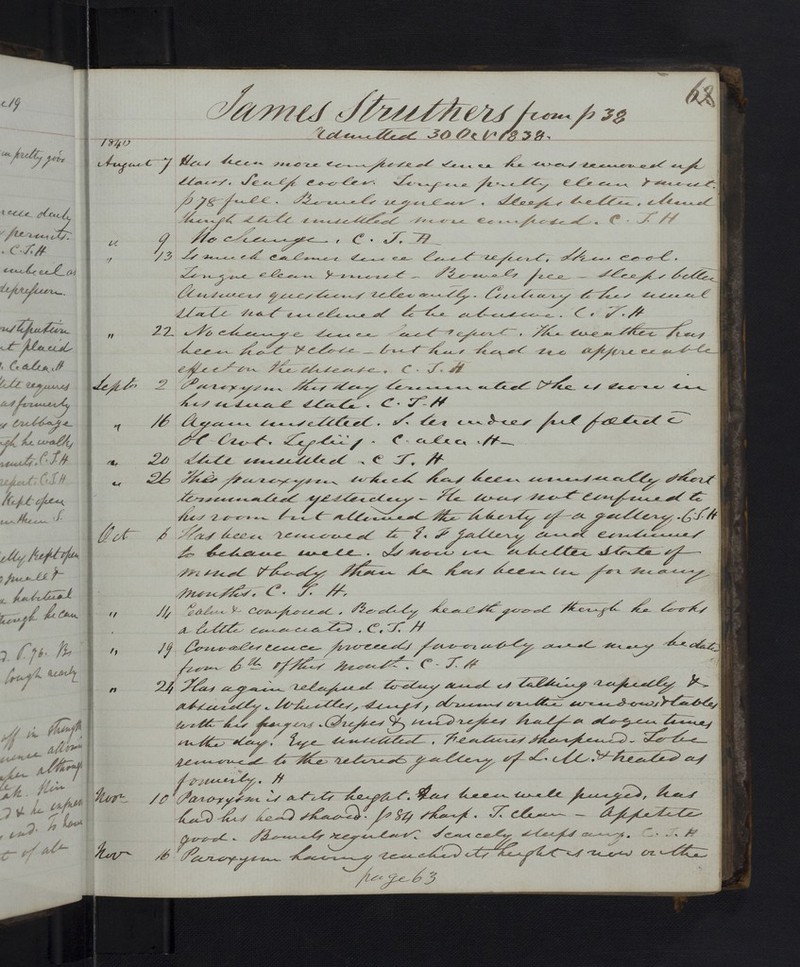 62
James Struthers from p 32
Admitted 30 Oct 1838.
1840
August 7 Has been more composed since he was removed up
stairs. Scalp cooler. Tongue pretty clean & moist.
P 78 full. Bowels regular. Sleeps better. Mind
though still unsettled more composed. C. J. H
" 9 No change. C. J. H
" 13 Is much calmer since last report. Skin cool.
Tongue clean & moist - Bowels free - Sleeps better
Answers questions relevantly. Contrary to his usual
state not inclined to be abusive. C. J. H
" 22 No change since last report. The weather has
been hot & close - but has had no appreciable
effect on the disease. C. J. H
Septr 2 Paroxysm this day terminated & he is now in
his usual state. C. J. H
" 16 Again unsettled.
Ol Crot. H
" 20 Still unsettled. C J. H
" 26 This paroxysm which has been unusually short
terminated yesterday - He was not confined to
his room but allowed the liberty of a gallery. C. J. H
Oct 6 Has been removed to gallery and continues
to behave well. Is now in a better state of
mind & body than he has been in for many
months. C. J. H.
" 14 Calm & composed. Bodily health good though he looks
a little emaciated. C. J. H
" 19 Convalescence proceeds favorably and may be dated
from 6th of this month. C. J. H
" 24 Has again relapsed today and is talking rapidly &
absurdly. Whistles, sings, drums on the windows & tables
with his fingers. Dresses & undresses half a dozen times
in the day. Eye unsettled. Features sharpened. To be
removed to the retired gallery of L. M. & treated as
formerly. H
Novr 10 Paroxysm is at its height. Has been well purged, has
had his head shaved. p 84 sharp. T. clean - Appetite
good. Bowels regular. Scarcely sleeps any. C. J. H
Nov 16 Paroxysm having reached its height is now on the
page 63